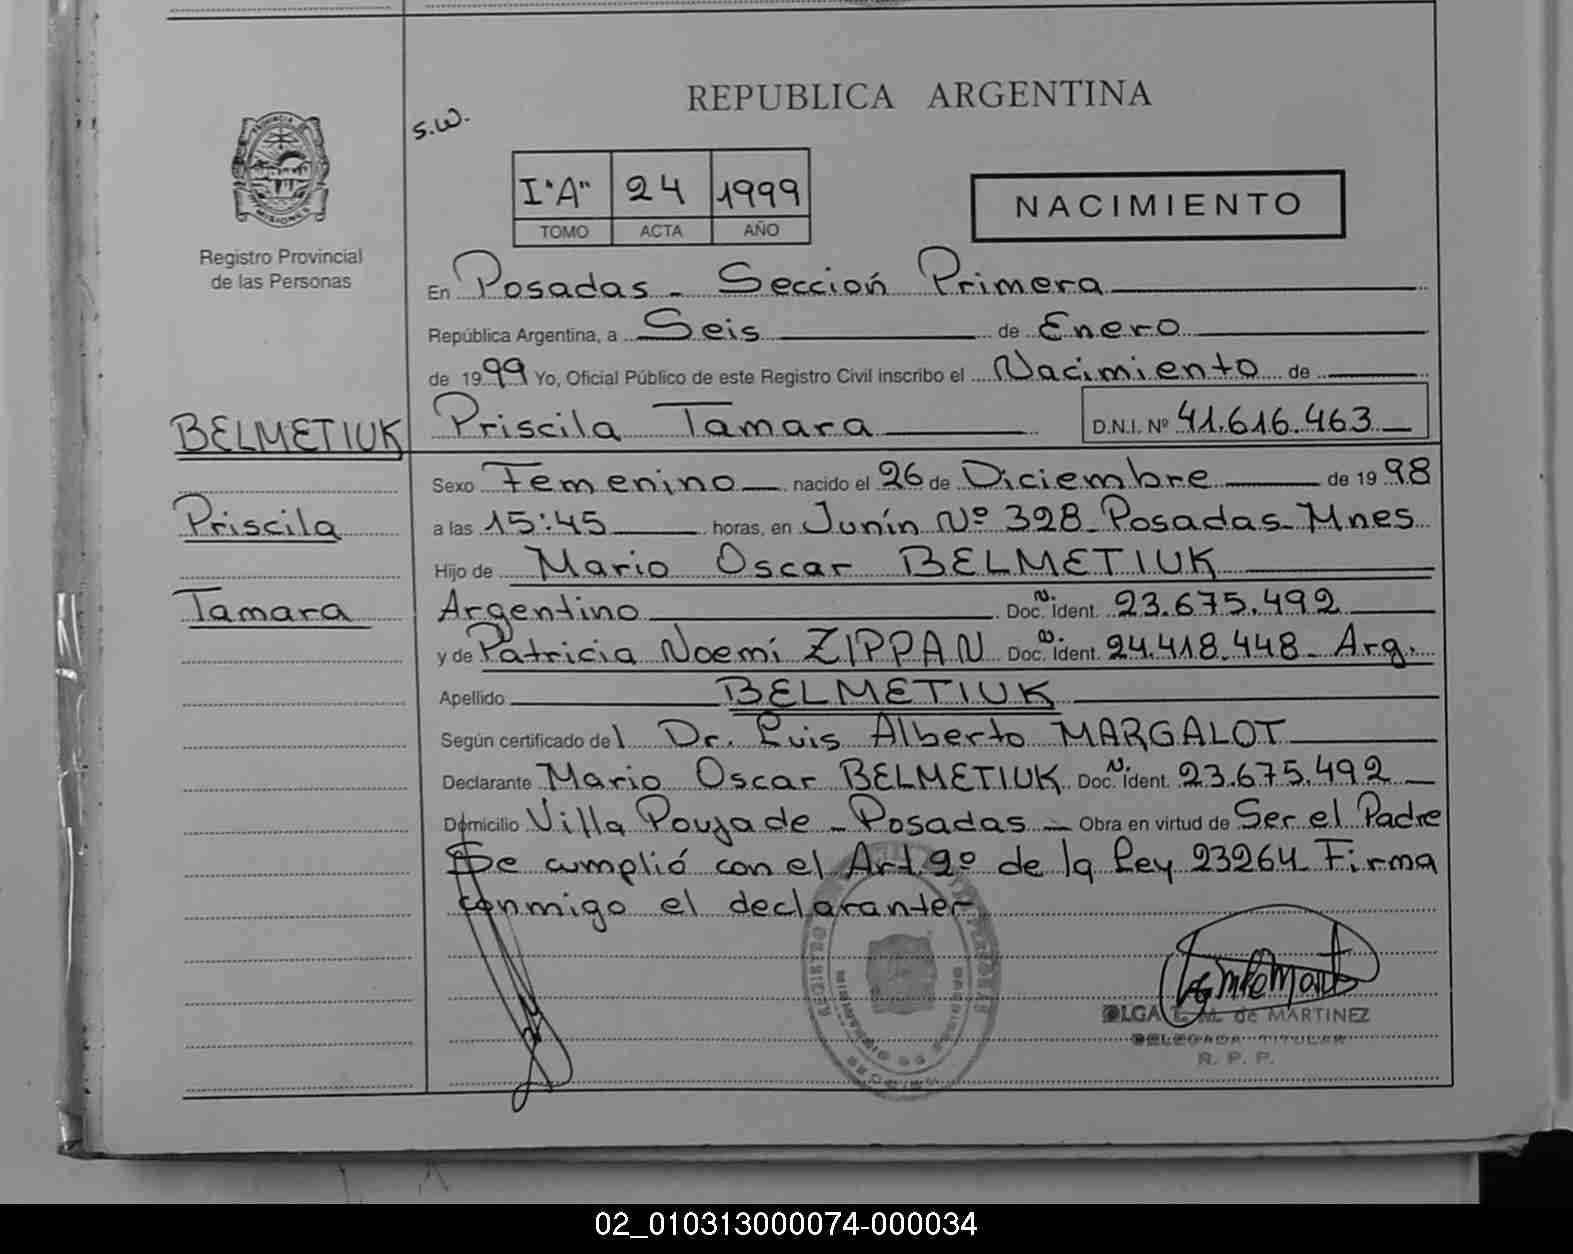 REPUBLICA ARGENTINA
S.W.
I "A" 24 1999
TOMO ACTA AÑO
NACIMIENTO
PROVINCIA DE
MISIONES
Registro Provincial
de las Personas
En Posadas - Sección Primera
República Argentina, a Seis de Enero
de 1999 Yo, Oficial Público de este Registro Civil inscribo el Nacimiento de
Priscila Tamara D.N.I. Nº 41.616.463
BELMETIUK
Priscila
Tamara
Sexo Femenino nacido el 26 de Diciembre de 1998
a las 15:45 horas, en Junín Nº 328 - Posadas - Mnes
Hijo de Mario Oscar BELMETIUK
Argentino Doc. N. Ident. 23.675.492
y de Patricia Noemí ZIPPAN Doc. N. Ident. 24.418.448 - Arg.
Apellido BELMETIUK
Según certificado del Dr. Luis Alberto MARGALOT
Declarante Mario Oscar BELMETIUK Doc. N. Ident. 23.675.492
Domicilio Villa Poujade - Posadas - Obra en virtud de Ser el Padre
Se cumplió con el Art. 9º de la Ley 23264 Firma
conmigo el declarante
OLGA de MARTINEZ
DELEGADA TITULAR
R. P. P.
02_010313000074-000034